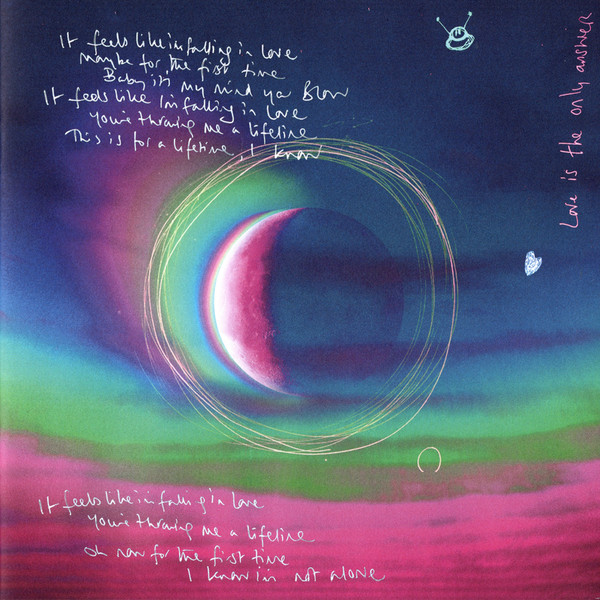 It feels like im falling in love
maybe for the first time
Baby it's my mind you Blow
It feels like I'm falling in love
you're throwing me a lifeline
This is for a lifetime, I know
Love is the only answer
It feels like im falling in love
you're throwing me a lifeline
oh now for the first time
I know im not alone